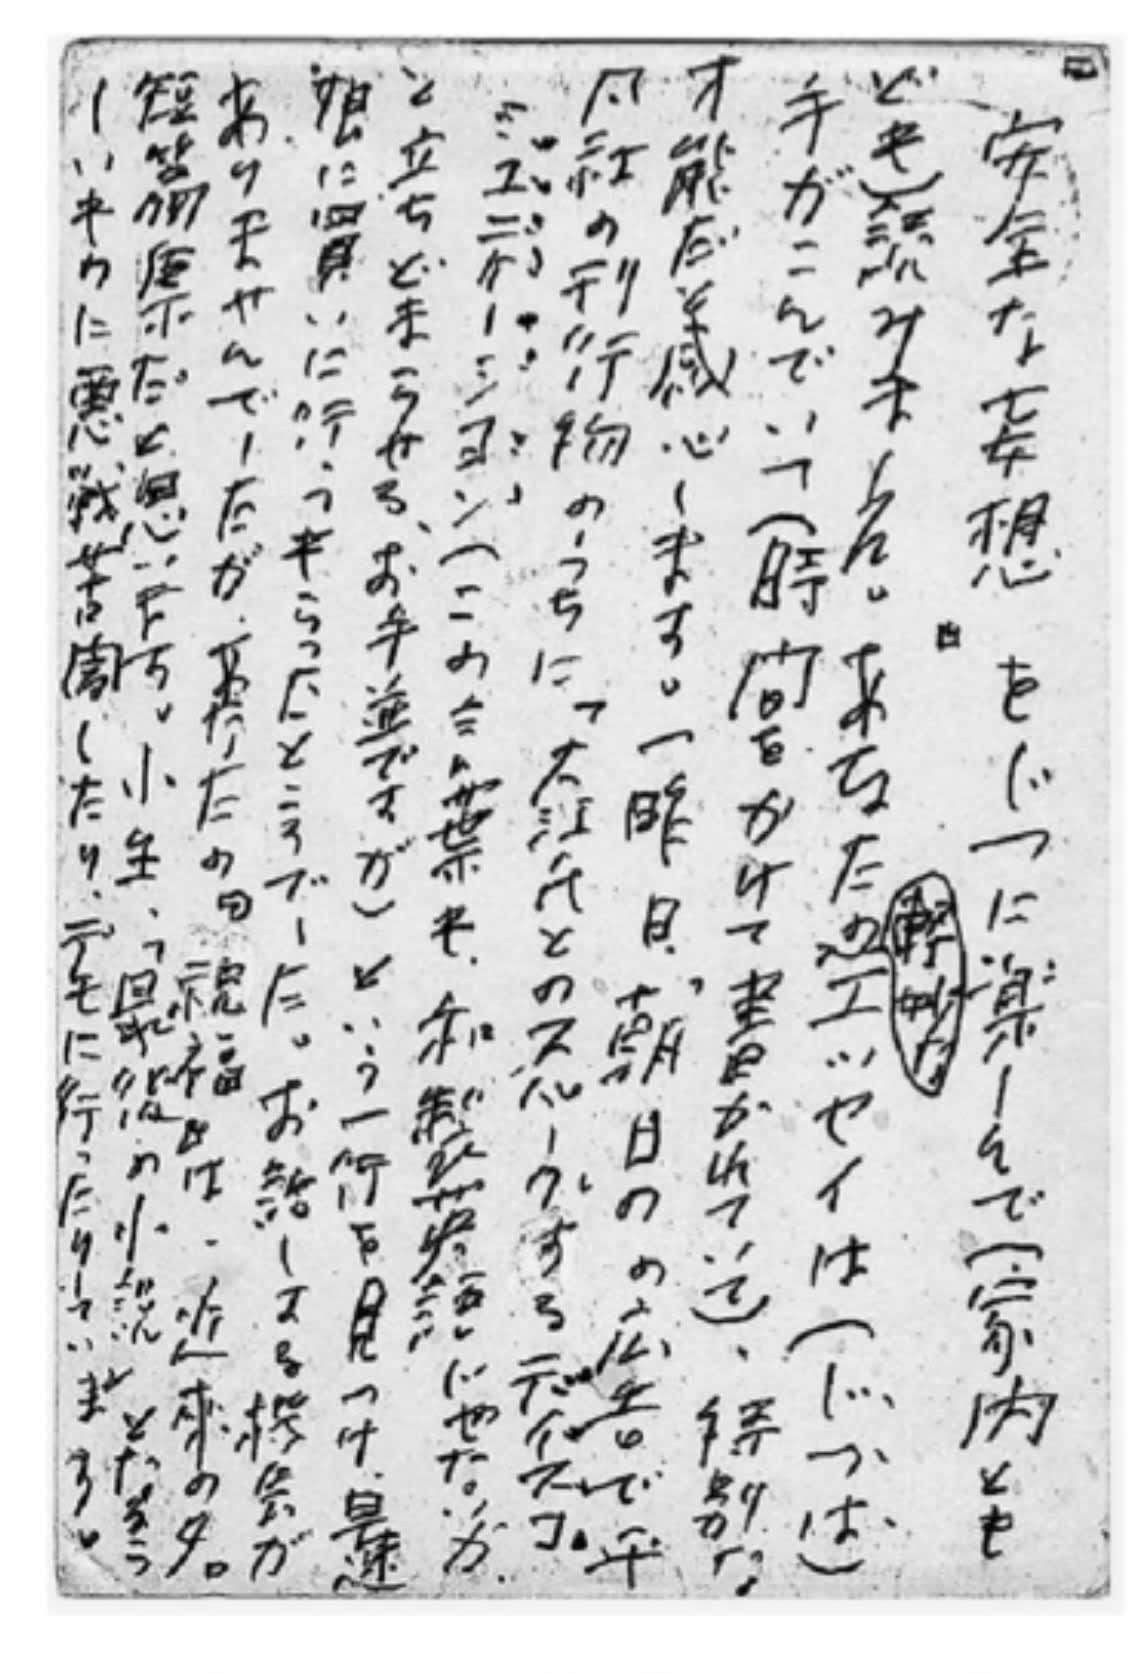 安全な妄想 をじつに楽しんで(家内とも
ども)読みました。あなたの軽妙なエッセイは(じつは)
手がこんでいて(時間をかけて書かれていて)、特別な
才能だと感心します。一昨日、朝日の広告で平
凡社の刊行物のうちに「大江氏とのスパークするディスコ
ミュニケーション(この言葉も、和製英語じゃないか
と立ちどまらせる、お手並ですが)という一行を見つけ、早速
娘に買いに行ってもらったところでした。お話しする機会が
ありませんでしたが、あなたの『祝福』は、近来の
短篇佳作だと思います。小生、『最後の小説』となるら
しいものに悪戦苦闘したり、デモに行ったりしています。